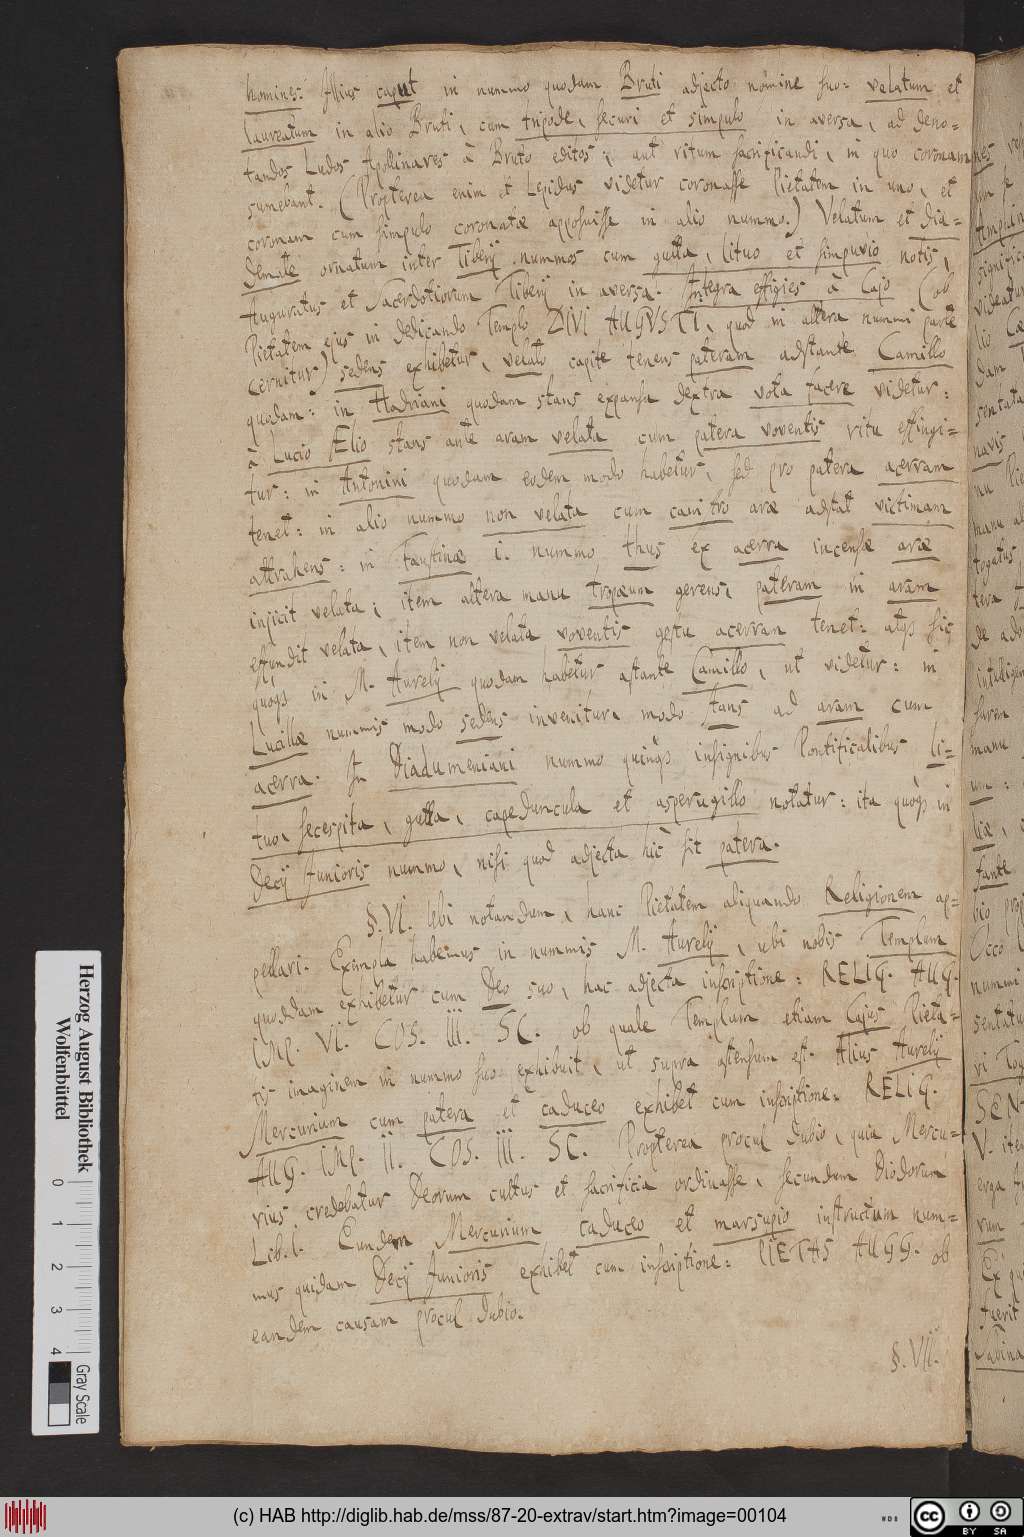 homines: Illius caput in nummo quodam Bruti adjecto nomine suo: velatum et
laureatum in alio Bruti, cum tripode, securi et simpulo in aversa, ad deno=
tandos Ludos Apollinares à Bruto editos; aut ritum sacrificandi, in quo coronam
sumebant. (Propterea enim et Lepidus videtur coronasse Pietatem in uno, et
coronam cum simpulo coronatæ apposuisse in alio nummo.) Velatum et Dia=
demate ornatum inter Tiberij nummos cum gutta, lituo et simpuvio notis,
Auguratus et Sacerdotiorum Tiberij in aversa. Integra effigies à Cajo (ob
Pietatem ejus in dedicando Templo DIVI AUGVSTI, quod in altera nummi parte
cernitur) sedens exhibetur, velato capite tenens pateram adstante Camillo
quodam: in Hadriani quodam stans expansa dextra vota facere videtur:
à Lucio Ælio stans ante aram velata cum patera voventis ritu effingi=
tur: in Antonini quodam eodem modo habetur, sed pro patera acerram
tenet: in alio nummo non velata cum canistro aræ adstat victimam
attrahens: in Faustinæ i. nummo thus ex acerra incensæ aræ
injicit velata; item altera manu tropæum gerens; pateram in aram
effundit velata, item non velata voventis gestu acerram tenet: atqs sic
quoqs in M. Aurelij quodam habetur astante Camillo, ut videtur: in
Lucillæ nummis modo sedens invenitur, modo stans ad aram cum
acerra. In Diadumeniani nummo quinqs insignibus Pontificalibus li=
tuo, secespita, gutta, capeduncula et asperugillo notatur: ita quoqs in
Decij Junioris nummo, nisi quod adjecta hic sit patera.
§. VI. Ubi notandum, hanc Pietatem aliquando Religionem ap=
pellari. Exempla habemus in nummis M. Aurelij, ubi nobis Templum
quoddam exhibetur cum Deo suo, hac adjecta inscriptione: RELIG. AUG.
IMP. VI. COS. III. SC. ob quale Templum etiam Cajus Pieta=
tis imaginem in nummo suo exhibuit, ut supra ostensum est. Alius Aurelij
Mercurium cum patera et caduceo exhibet cum inscriptione. RELIG.
AUG. IMP. II. COS. III. SC. Propterea procul dubio, quia Mercu=
rius credebatur Deorum cultus et sacrificia ordinasse, secundum Diodorum
Lib. I. Eundem Mercurium caduceo et marsupio instructum num=
mus quidam Decij Junioris exhibet cum inscriptione: PIETAS AUGG. ob
eandem causam procul dubio.
§. VII.
Herzog August Bibliothek
Wolfenbüttel
0 1 2 3 4
Gray Scale
(c) HAB http://diglib.hab.de/mss/87-20-extrav/start.htm?image=00104
cc BY SA